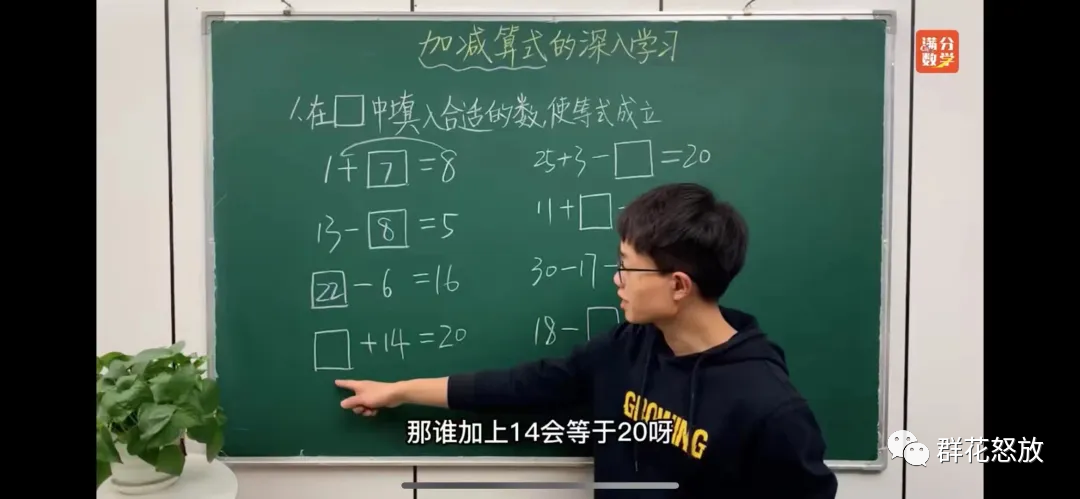 加减算式的深入学习
满分
数学
1.在□中填入合适的数,使等式成立
1+7=8
13-8=5
22-6=16
□+14=20
25+3-□=20
11+□-
30-17-
18-□
GLOWING
那谁加上14会等于20呀
群花怒放